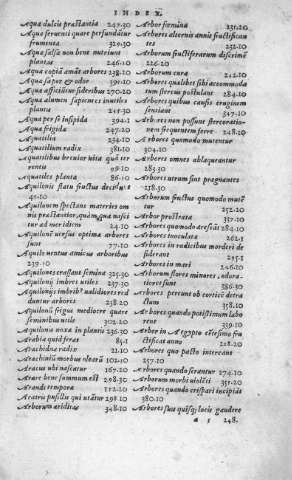 INDEX.
Aquæ dulcis præstantia 247.30
Aqua feruenti quare perfundatur
frumenta 329.30
Aqua salsa non bene nutriunt
plantæ 246.10
Aqua copia amāt arbores 238.10
Aqua sapor et odor
Aqua assiditas sideribus 270.20
Aqua alumen supernes inutiles
plantæ 245.30
Aqua per se insipida 394.1
Aqua frigida 247.20
Aquatilia 254.10
Aquatilium radix 381.10
Aquatilibus breuior uita quā ter
rentis
Aquatiles plantæ 86.10
Aquilonis flatu fructus
45.10
Aquilonem spectans materies om
nis præstantior, quàm quæ nasci
tur ad meridiem 24.10
Aquiloni uersus optima arbores
sunt 77.10
Aquilo uentus amicus arboribus
239.10
Aquilones crassant semina 325.30
Aquilonij imbres utiles 237.10
Aquilonij imbres ualidiores red
dunt arbores 238.20
Aquiloni frigus mediocre quare
seminibus utile 302.20
Aquilonia noxa in plantis 236.30
Arabia quid ferat 84.1
Arachidna radix 21.10
Arachini morbus olearū 102.10
Aracus ubi nascatur 167.20
Arare bene summum est 298.30
Arandi tempora 112.10
Aratris pusillis qui utātur 298.10
Arborum ariditas 348.10
Arbores firmina 231.20
Arbores alternis annis fructificant
252.10
Arborum fructiferarum discrimē
226.20
Arborum cura 212.10
Arbores qualibet sibi accommoda
tum stercus postulant 284.10
Arbores quibus causis eruginem
sentiant 347.10
Arbores non possunt stercoratio-
nem frequentem ferre 248.20
Arbores quomodo mutentur
304.10
Arbores omnes ablaqueantur
283.30
Arbores utrum sint pregnantes
258.30
Arborum fructus quomodo mutē
tur 252.10
Arbor prostrata 357.10
Arbores quomodo arefiāt 284.10
Arbores inoculatæ 262.1
Arbores in radicibus morderi de
siderant 215.1
Arbores in mari 246.10
Arborum flores minores, odora-
tiores sunt 386.30
Arbores pereunt ob corticē detra
ctum 358.10
Arbores quando potissimum labo
rent 339.10
Arbor in Ægypto citissimo fru
ctificat anno 228.20
Arbores quo pacto intereant
357.10
Arbores quando serantur 274.10
Arborum morbi uiolēti 351.20
Arbores quando crispari incipiāt
380.10
Arbores suis quisq; locis gaudere
a 5 248.